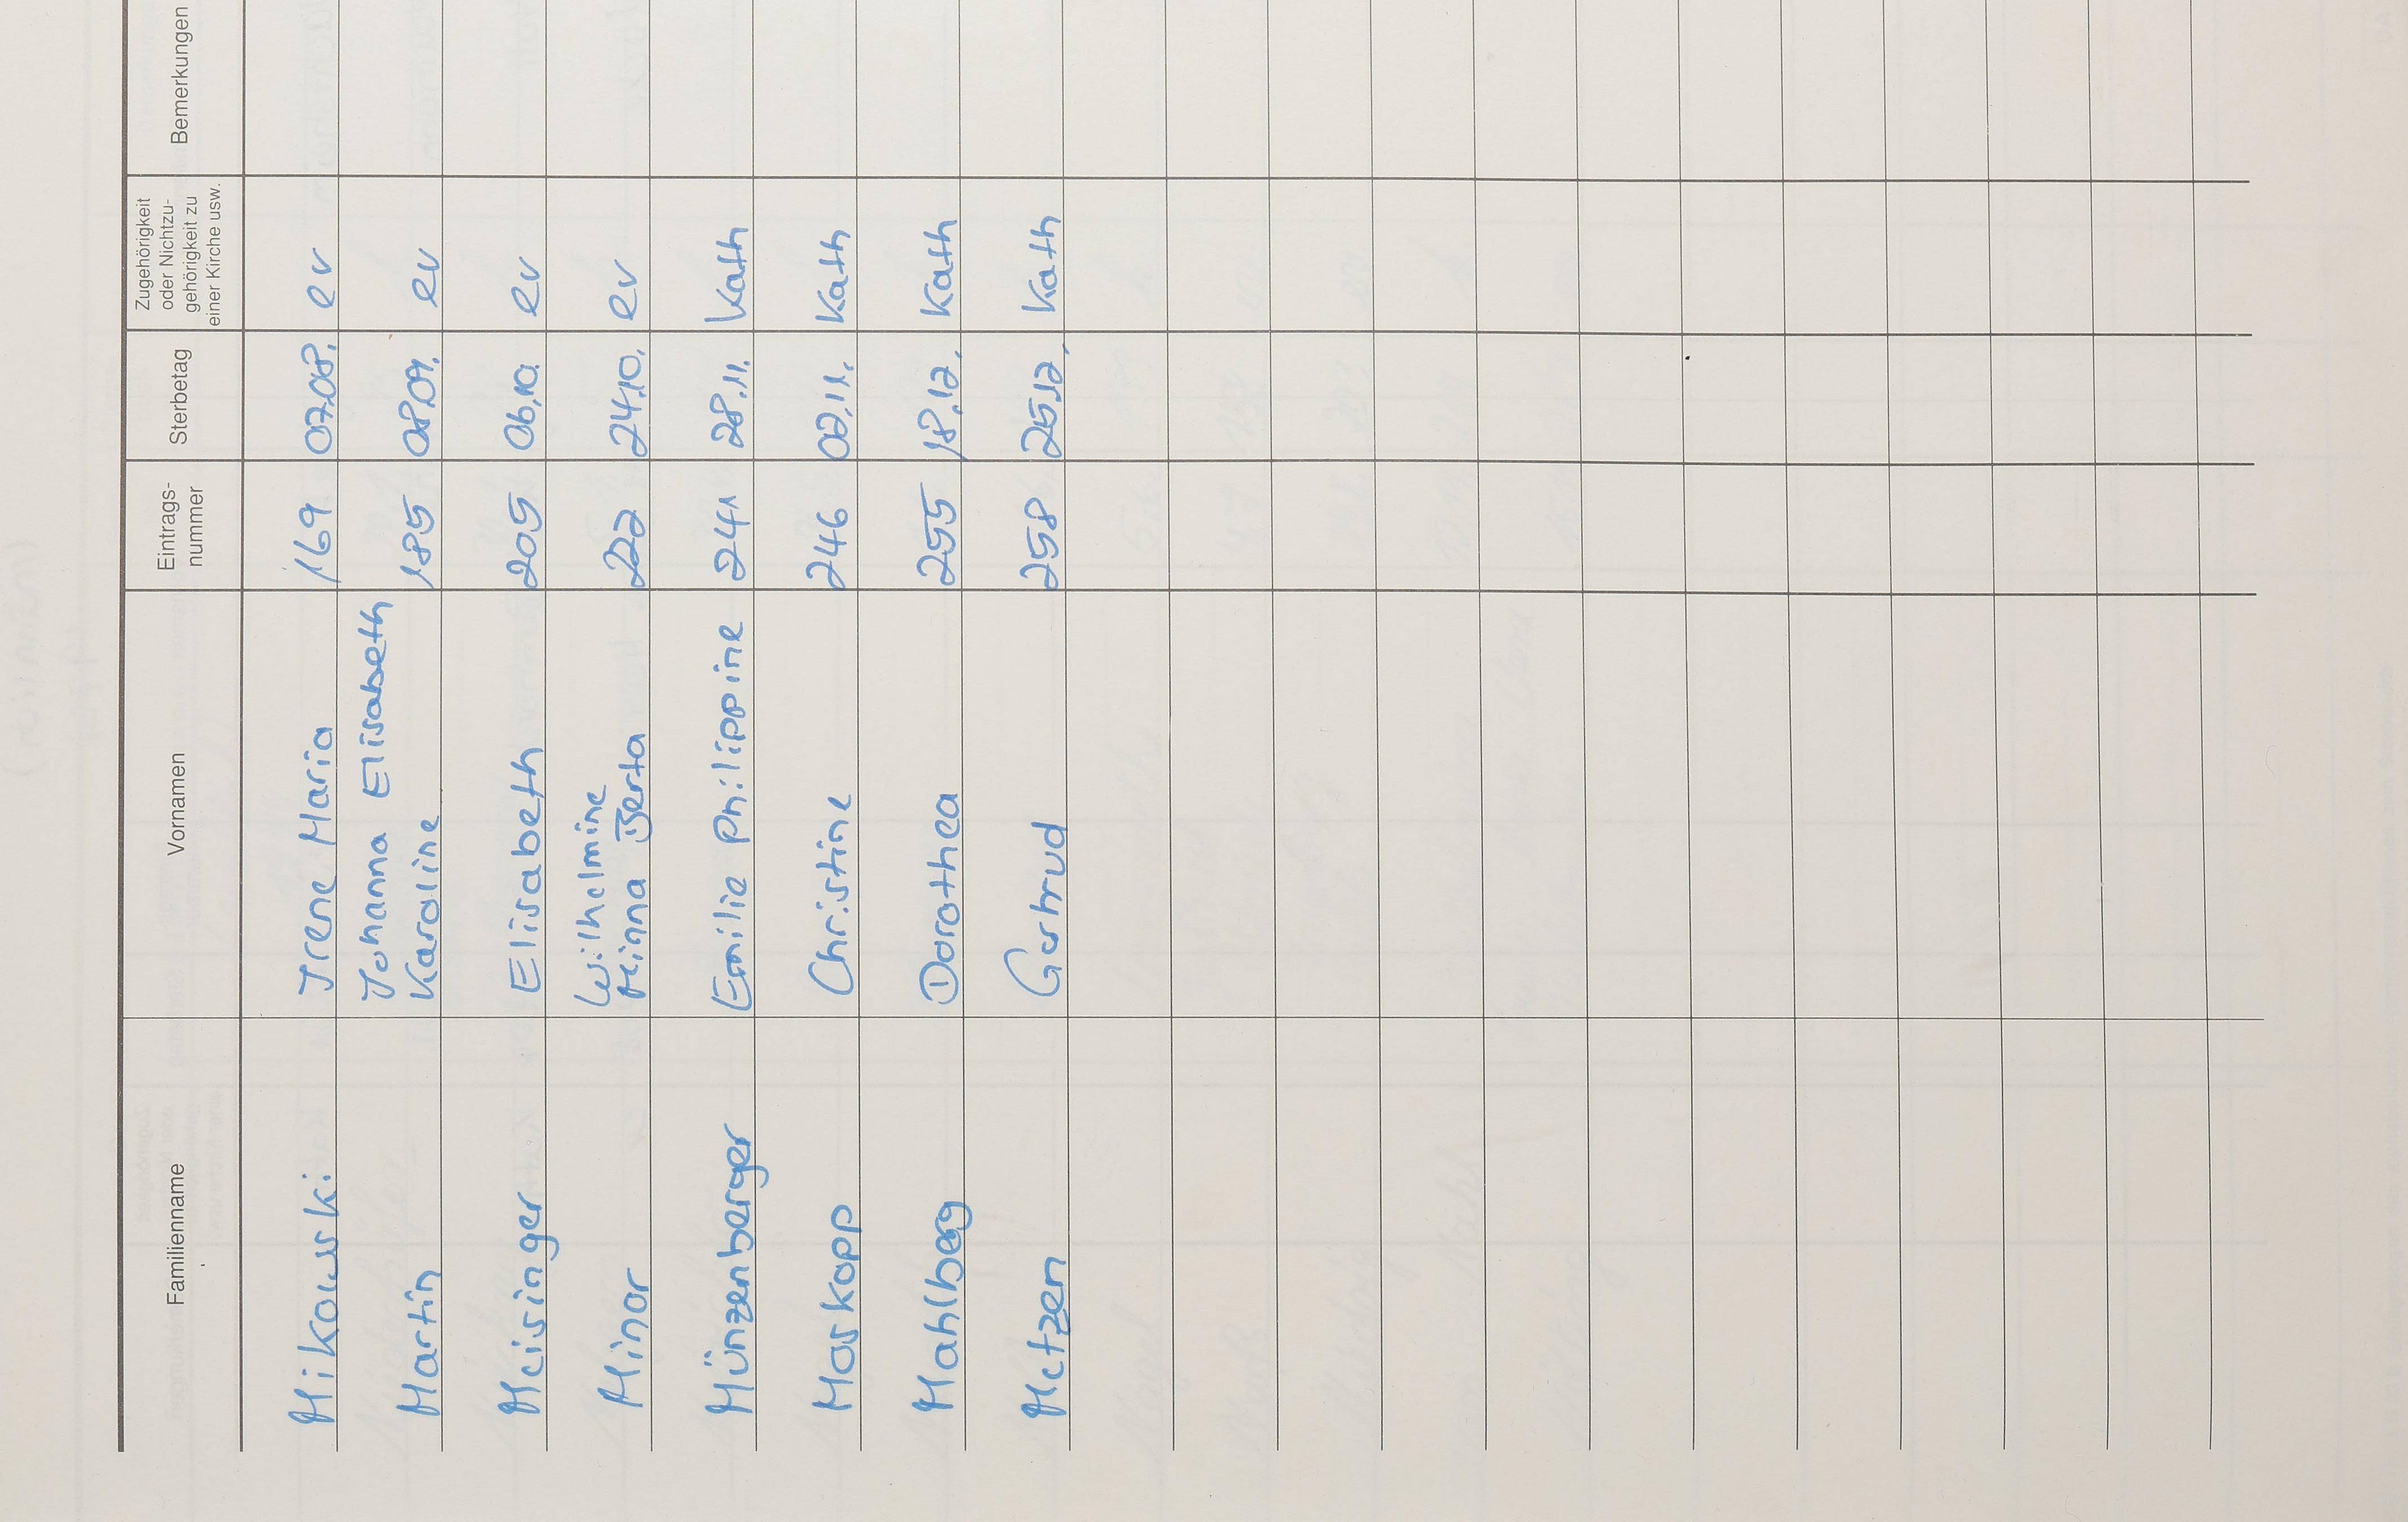 Familienname Vornamen Eintrags- Sterbetag Zugehörigkeit Bemerkungen
nummer oder Nichtzu-
gehörigkeit zu
einer Kirche usw.
Mikowski Irene Maria 169 07.08. ev
Johanna Elisabeth
Martin Karoline 185 08.09. ev
Meisinger Elisabeth 205 06.10. ev
Wilhelmine
Minor Minna Berta 222 24.10. ev
Münzenberger Emilie Philippine 241 28.11. Kath
Moskopp Christine 246 02.11. Kath
Mahlberg Dorothea 255 18.12. Kath
Metzen Gertrud 258 25.12. Kath